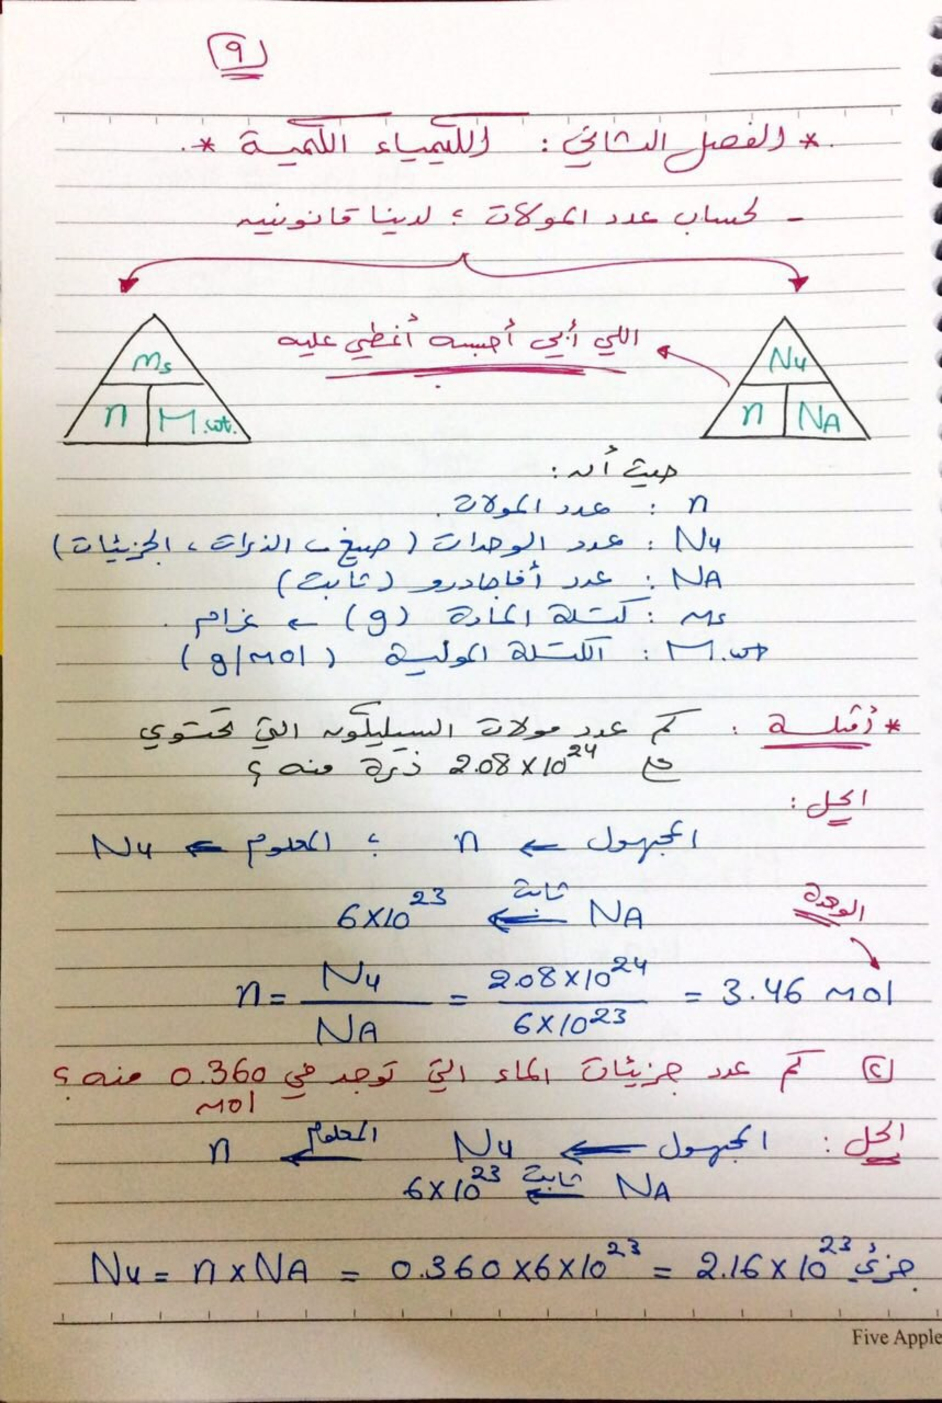 ٩
* الفصل الثاني : الكيمياء الكمية *
- لحساب عدد المولات ؛ لدينا قانونين
ms
n M.wt.
اللي أبي أحسبه أغطي عليه
Nu
n NA
حيث أن :
n : عدد المولات .
Nu : عدد الوحدات ( صيغ ، الذرات ، الجزيئات )
NA : عدد أفاجادرو ( ثابت )
ms : كتلة المادة (g) ← غرام .
M.wt : الكتلة المولية ( g/mol )
* أمثلة : كم عدد مولات السيليكون التي تحتوي
ع 2.08 x 10^24 ذرة منه ؟
الحل :
المجهول ← n ؛ المعلوم ← Nu
NA ← ثابت 6x10^23
الوحدة
n = Nu / NA = 2.08x10^24 / 6x10^23 = 3.46 mol
٢ كم عدد جزيئات الماء التي توجد في 0.360 منه ؟
mol
الحل : المجهول ← Nu المعلوم ← n
NA ← ثابت 6x10^23
Nu = n x NA = 0.360 x 6 x 10^23 = 2.16 x 10^23 جزيء .
Five Apple